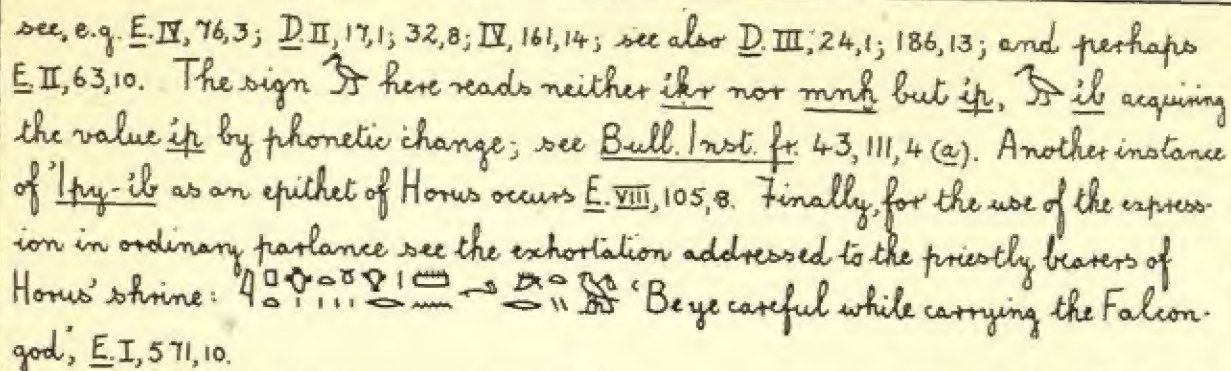 see, e.g. E.IV, 76,3; D.II, 17,1; 32,8; IV, 161,14; see also D.III, 24,1; 186,13; and perhaps
E.II, 63,10. The sign here reads neither iḳr nor mnḫ but ip, ib acquiring
the value ip by phonetic change; see Bull. Inst. fr. 43, 111, 4 (a). Another instance
of 'Ipy-ib as an epithet of Horus occurs E.VIII, 105, 8. Finally, for the use of the express-
ion in ordinary parlance see the exhortation addressed to the priestly bearers of
Horus' shrine: 'Be ye careful while carrying the Falcon-
god', E.I, 571, 10.